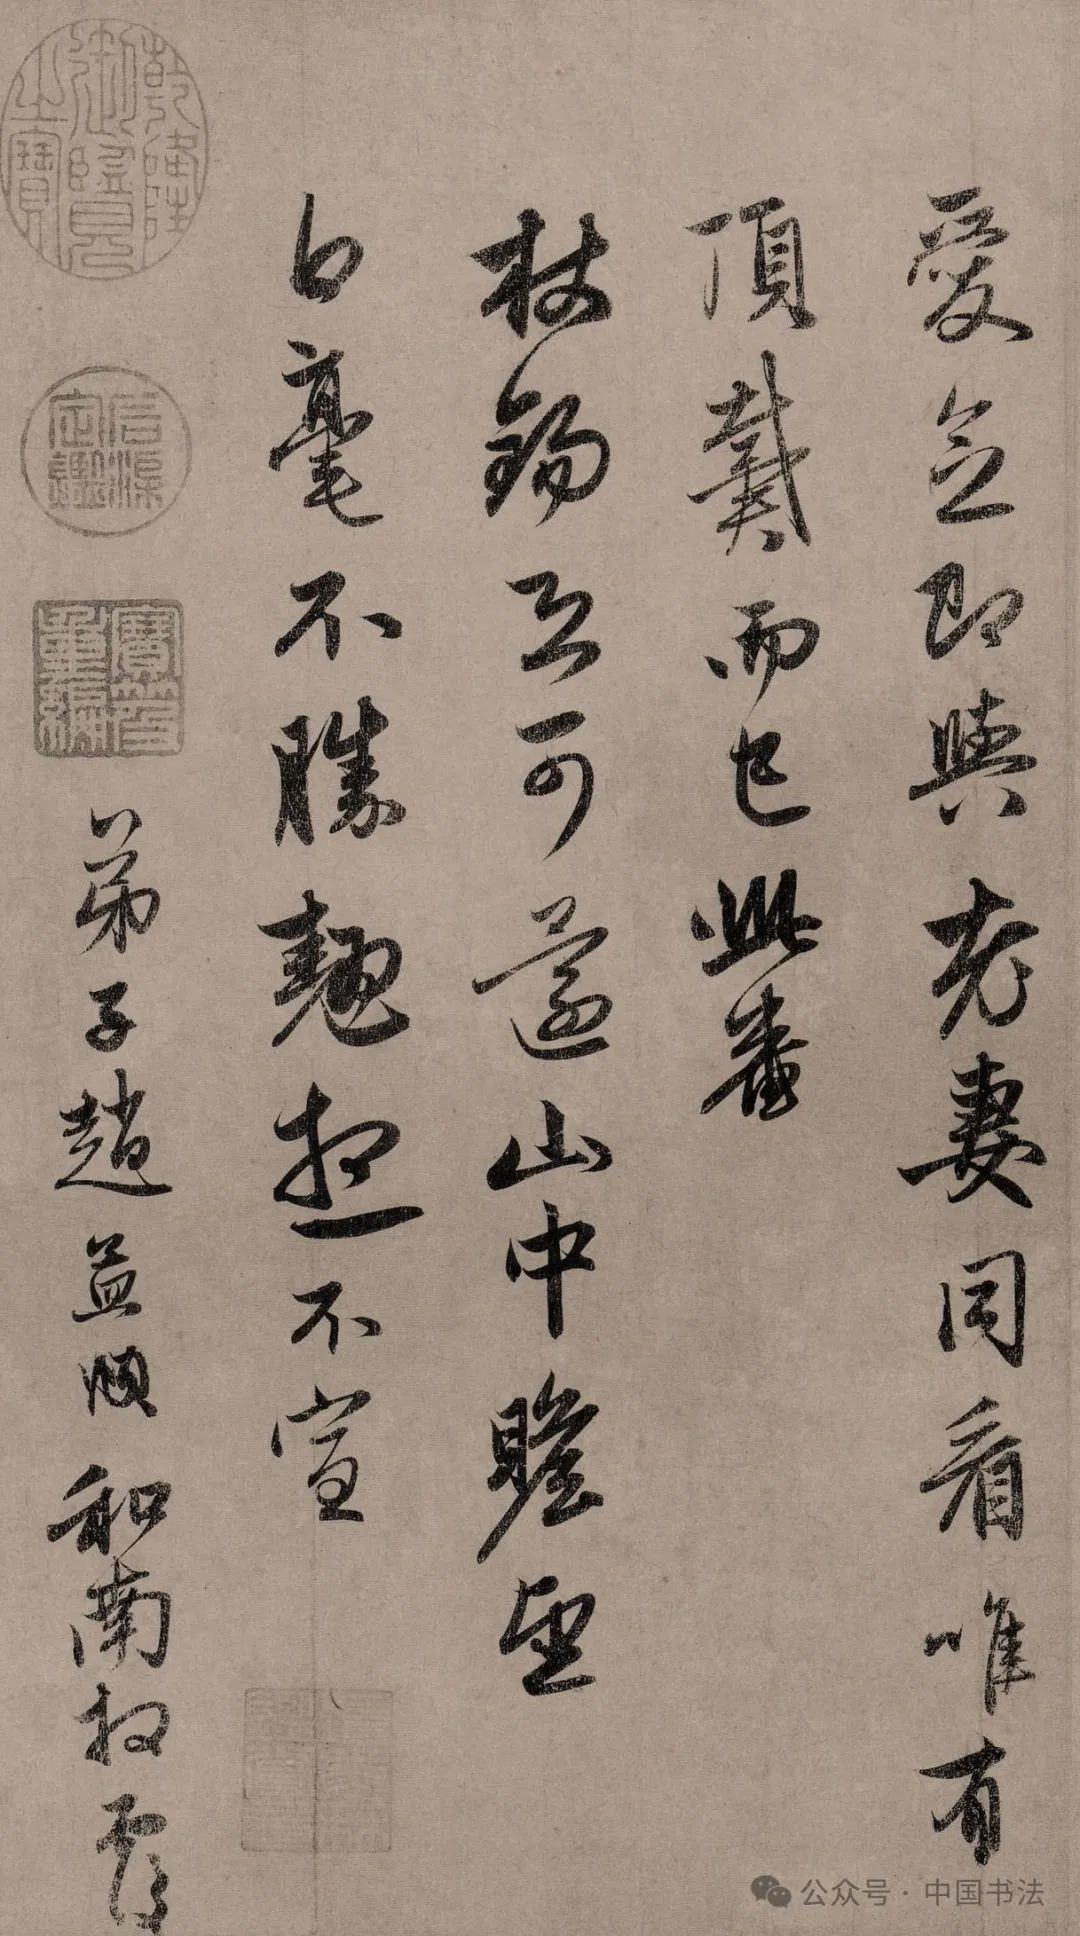 愛念即與老妻同看唯有
頂戴而已此番
杖錫可還山中瞻望
白毫不勝翹想不宣
弟子趙孟頫和南拜覆
乾隆御覽之寶
石渠定鑑
寶笈重編
公众号·中国书法